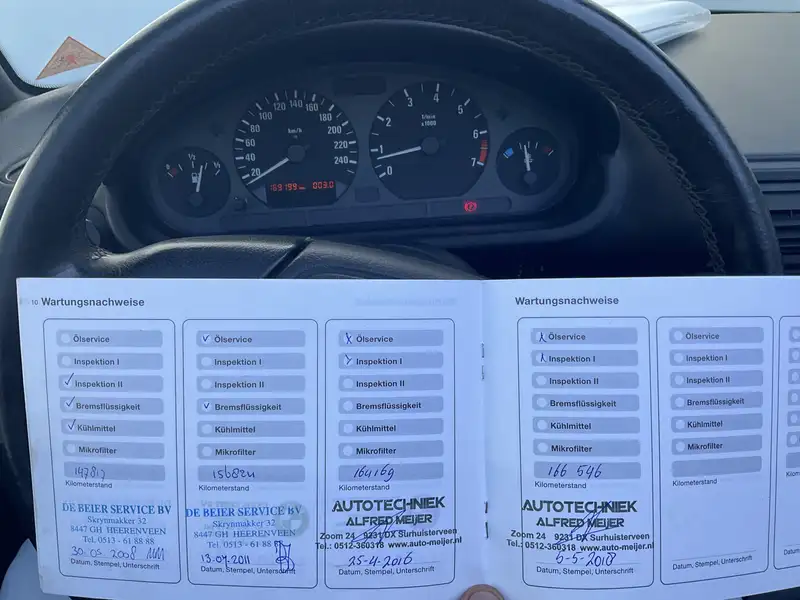 20
40
60
80
100
120
140
160
180
200
220
240
km/h
169199 km 003.0
0
1
2
3
4
5
6
7
1/min
x 1000
0
1/2
1/1
10 Wartungsnachweise
Ölservice
Inspektion I
Inspektion II
Bremsflüssigkeit
Kühlmittel
Mikrofilter
Kilometerstand
DE BEIER SERVICE BV
Skrynmakker 32
8447 GH HEERENVEEN
Tel. 0513 - 61 88 88
30.05.2008
Datum, Stempel, Unterschrift
Ölservice
Inspektion I
Inspektion II
Bremsflüssigkeit
Kühlmittel
Mikrofilter
Kilometerstand
DE BEIER SERVICE BV
Skrynmakker 32
8447 GH HEERENVEEN
Tel. 0513 - 61 88
13.07.2011
Datum, Stempel, Unterschrift
Ölservice
Inspektion I
Inspektion II
Bremsflüssigkeit
Kühlmittel
Mikrofilter
164169
Kilometerstand
AUTOTECHNIEK
ALFRED MEIJER
Zoom 24 9231 DX Surhuisterveen
Tel.: 0512-360318 www.auto-meijer.nl
25-4-2016
Datum, Stempel, Unterschrift
Wartungsnachweise
Ölservice
Inspektion I
Inspektion II
Bremsflüssigkeit
Kühlmittel
Mikrofilter
166 546
Kilometerstand
AUTOTECHNIEK
ALFRED MEIJER
Zoom 24 9231 DX Surhuisterveen
Tel.: 0512-360318 www.auto-meijer.nl
5-5-2018
Datum, Stempel, Unterschrift
Ölservice
Inspektion I
Inspektion II
Bremsflüssigkeit
Kühlmittel
Mikrofilter
Kilometerstand
Datum, Stempel, Unterschrift